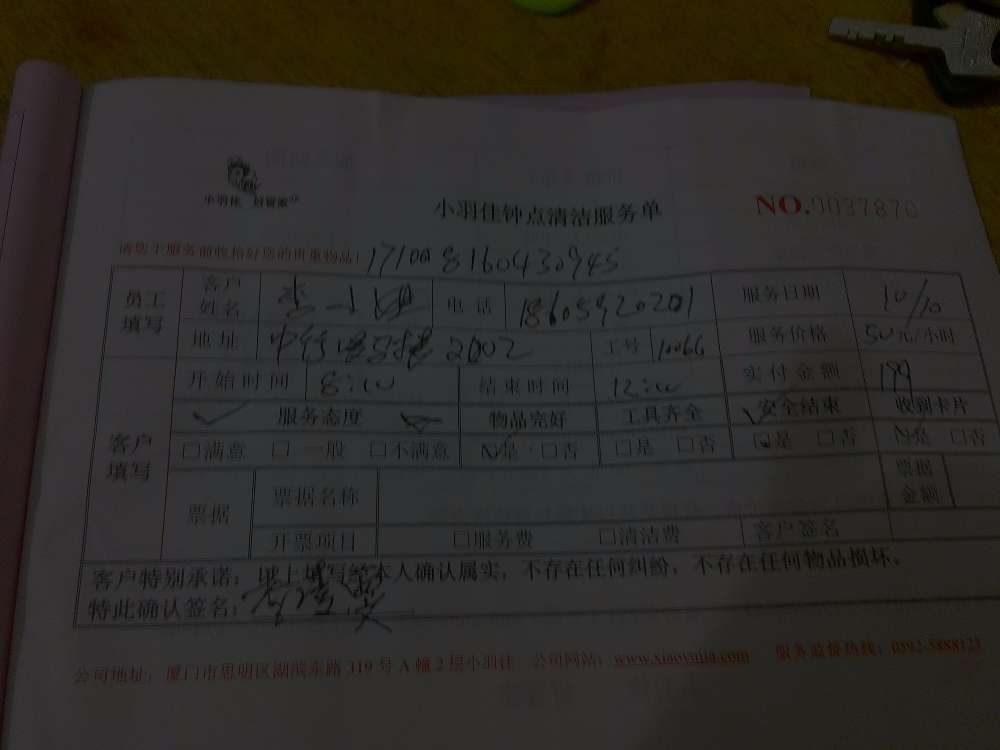 小羽佳
小羽佳钟点清洁服务单
NO.0037870
请您于服务前收拾好您的贵重物品!
171008160430945
员工填写
客户姓名
电话 18605920201
服务日期 10/10
地址 2002
工号 10066
服务价格 50元/小时
客户填写
开始时间 8:00
结束时间 12:00
实付金额 199
服务态度 物品完好 工具齐全 安全结束 收到卡片
□满意 □一般 □不满意 是 □否 □是 □否 □是 □否 是 □否
票据 票据名称 票据金额
开票项目 □服务费 □清洁费 客户签名
客户特别承诺:以上填写经本人确认属实,不存在任何纠纷,不存在任何物品损坏。
特此确认签名:
公司地址:厦门市思明区湖滨东路319号A幢2层小羽佳 公司网站:www.xiaoyujia.com 服务监督热线:0592-5888123